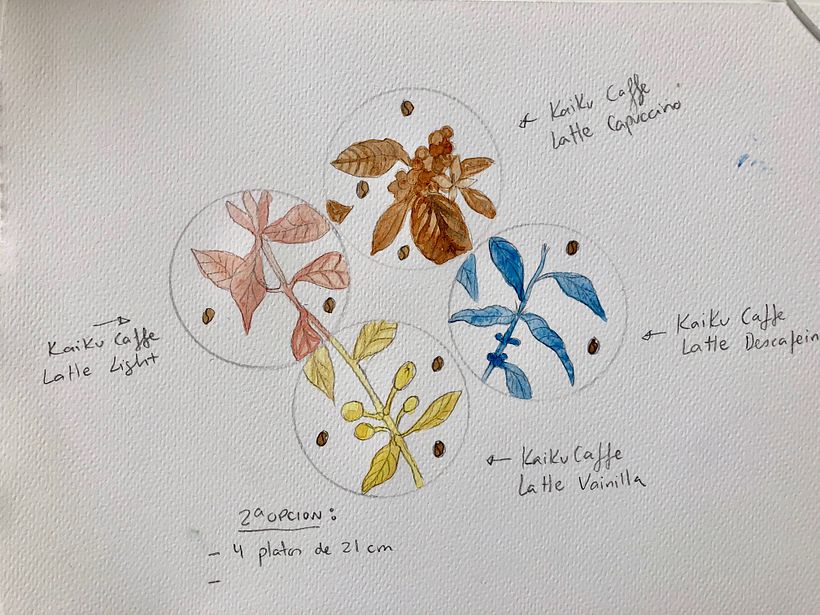 Kaiku Caffe
Latte Capuccino
Kaiku Caffe
Latte Light
Kaiku Caffe
Latte Descafein
Kaiku Caffe
Latte Vainilla
2ª OPCION:
- 4 platos de 21 cm
-